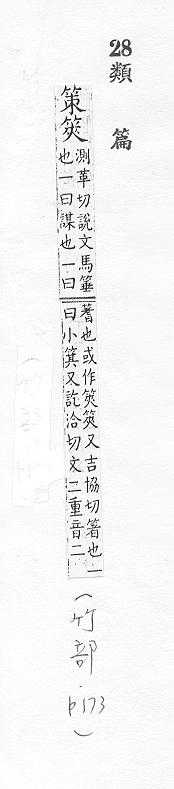 28類篇
策筴測革切說文馬箠
也一曰謀也一曰
蓍也或作筴筴又吉協切箸也一
曰小箕又訖洽切文二重音二
(竹部.p173)